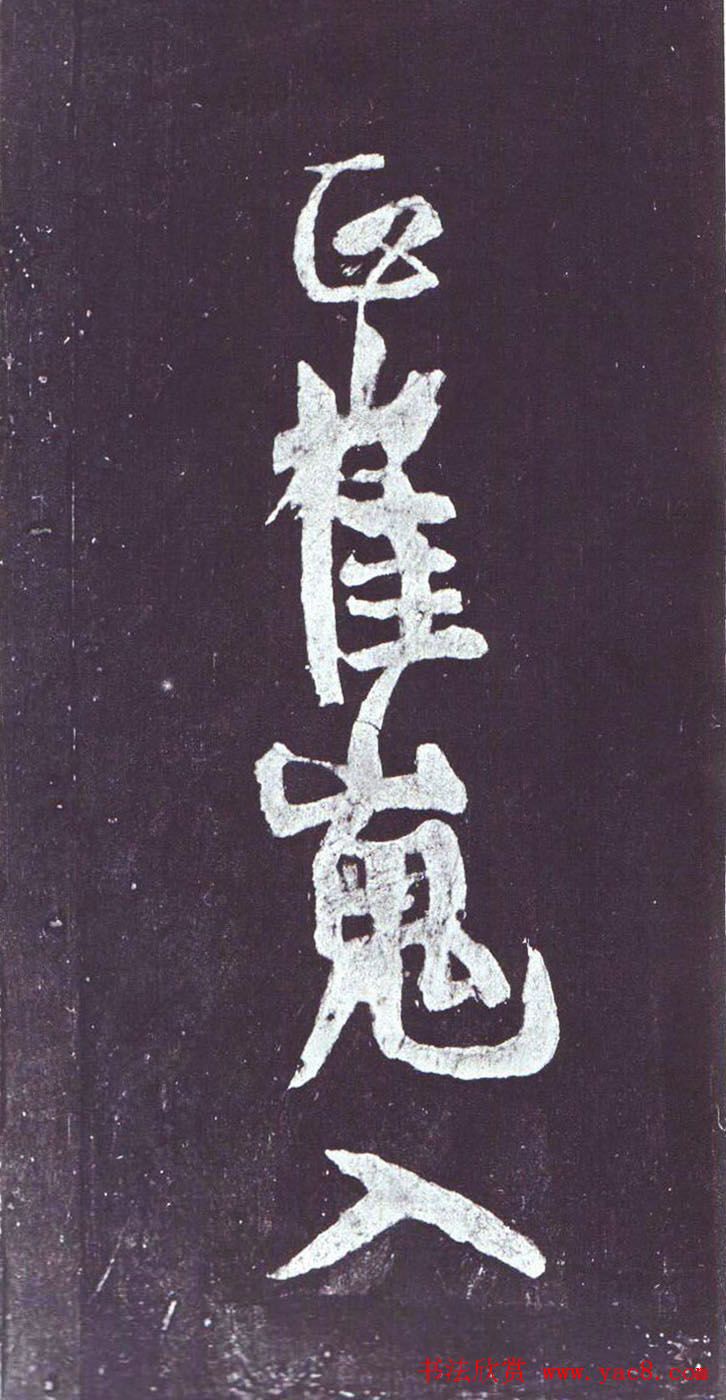 崔嵬入
书法欣赏 www.yac8.com